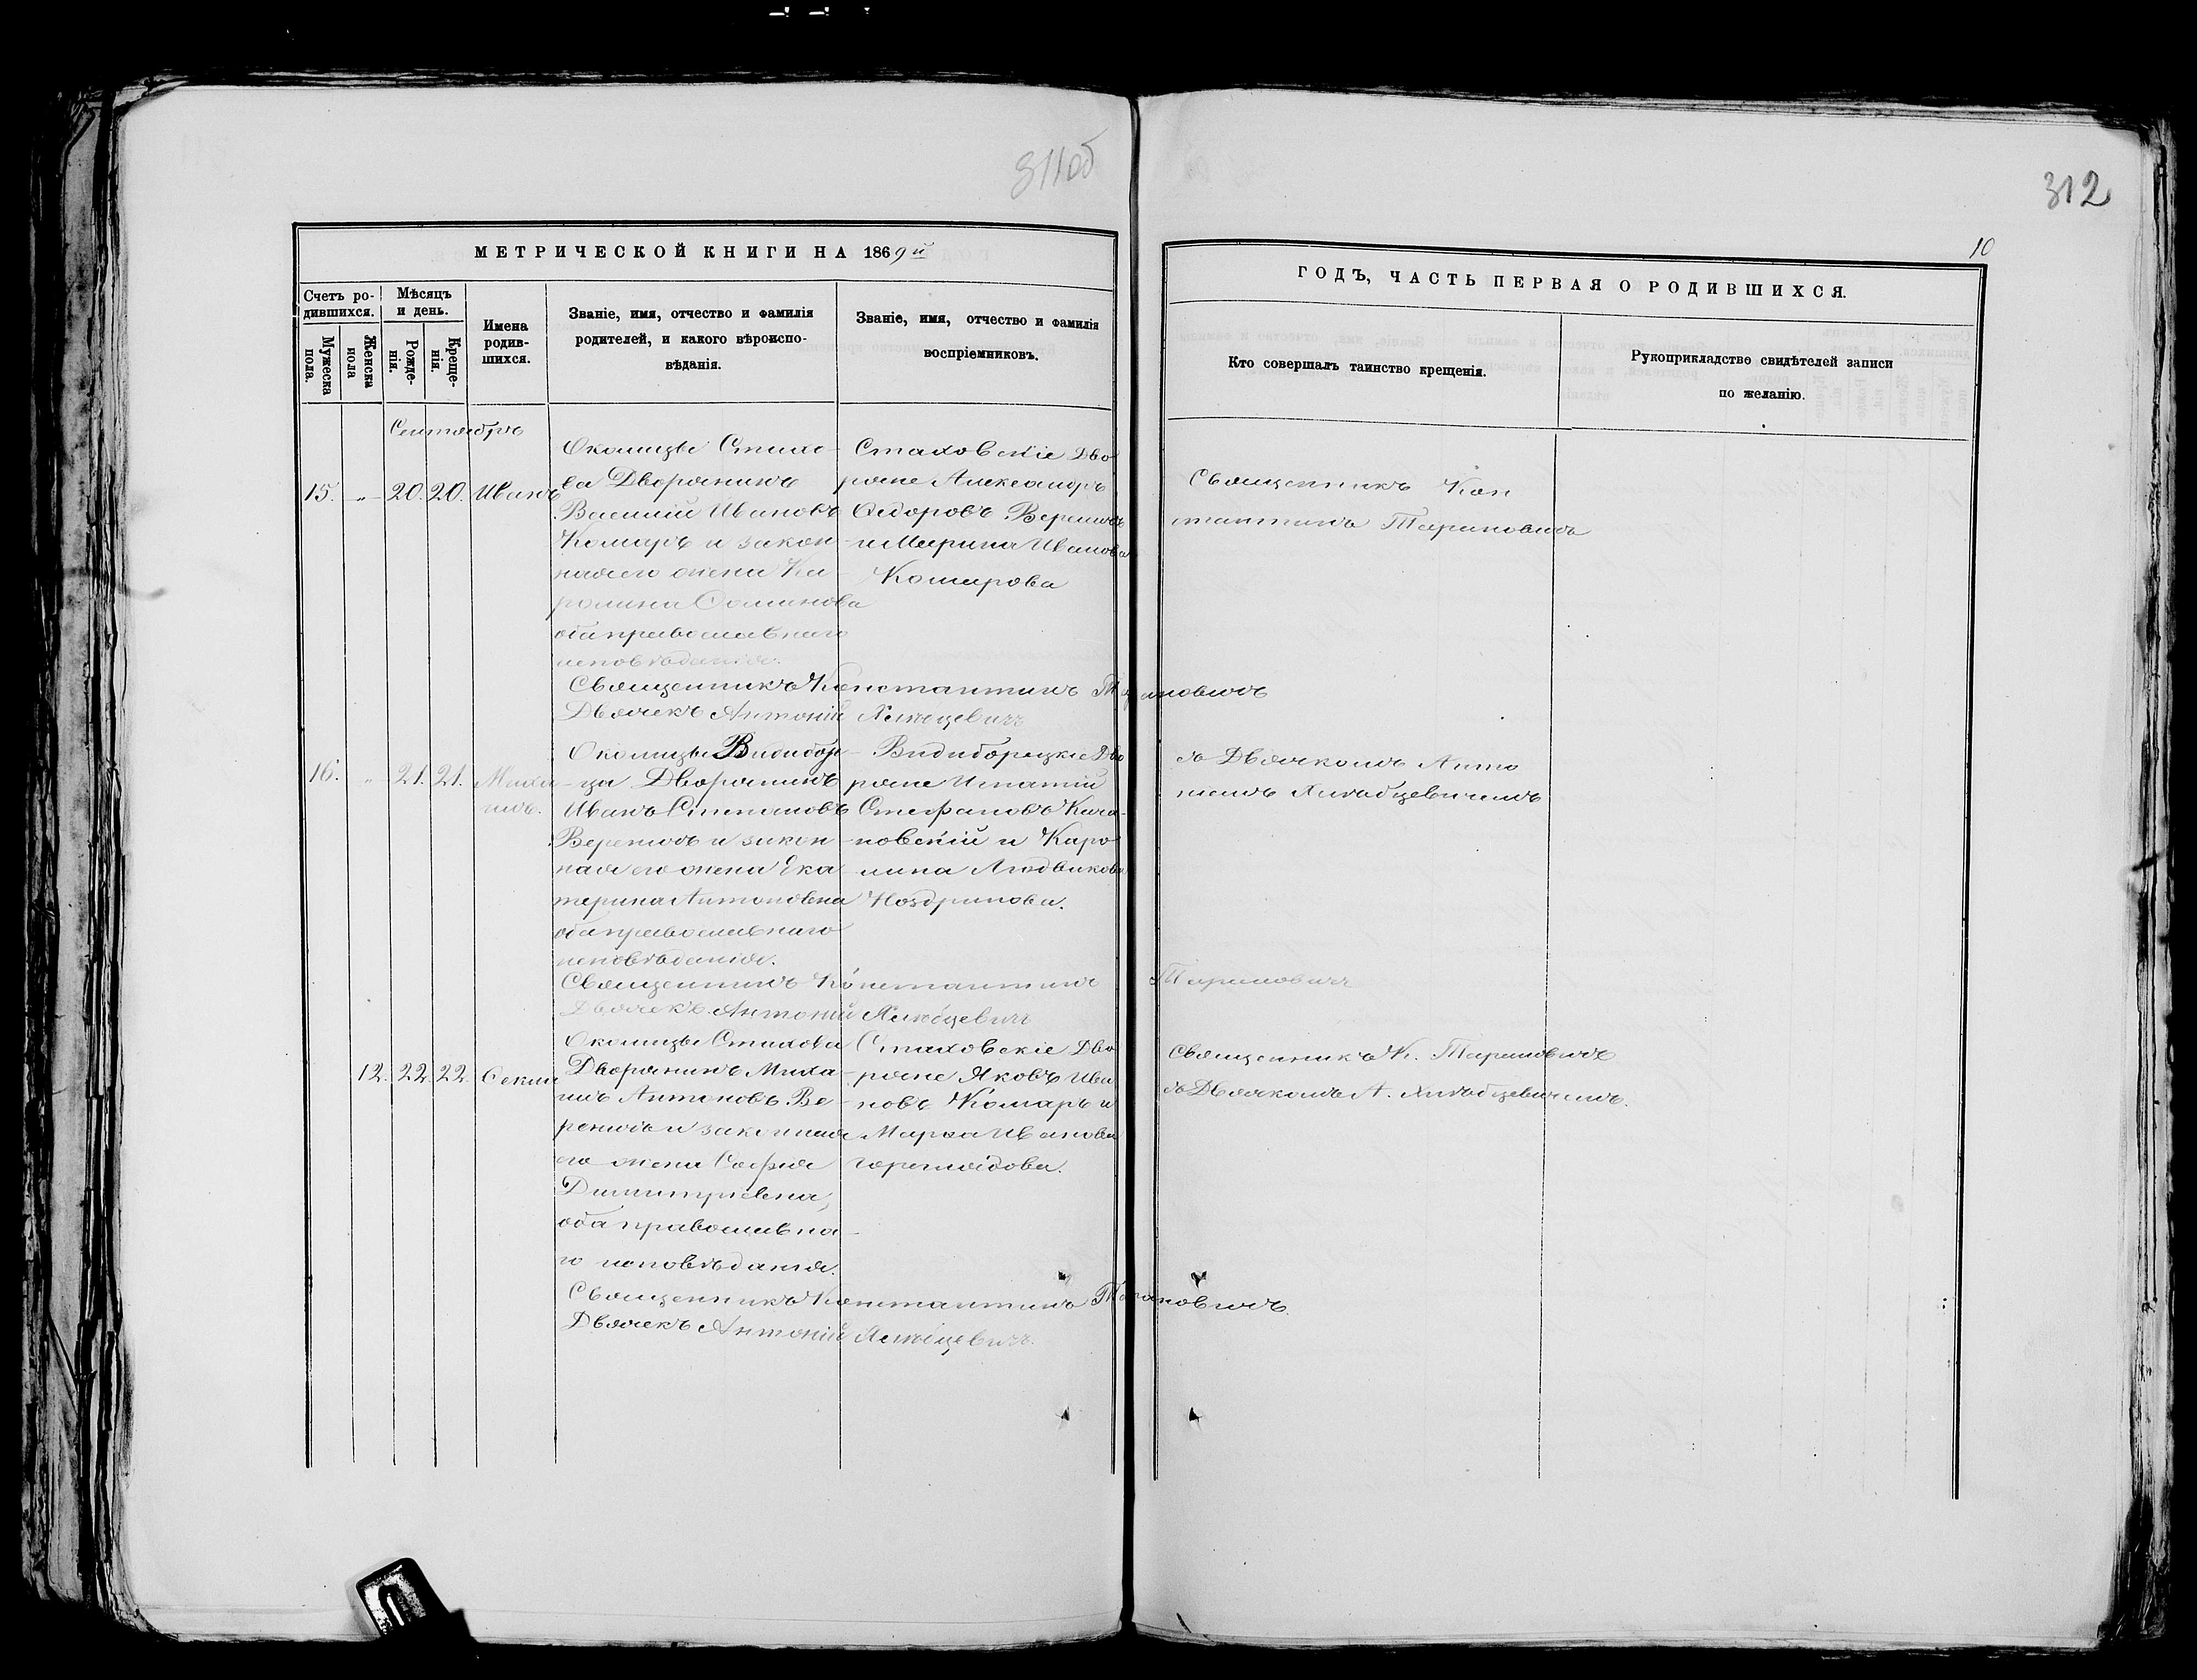 311об
312
10
МЕТРИЧЕСКОЙ КНИГИ НА 1869й
ГОДЪ, ЧАСТЬ ПЕРВАЯ О РОДИВШИХСЯ.
Счетъ ро-
дившихся.
Мужеска
пола.
Женска
пола
Мѣсяцъ
и день.
Рожде-
нія.
Креще-
нія.
Имена
родив-
шихся.
Званіе, имя, отчество и фамилія
родителей, и какого вѣроиспо-
вѣданія.
Званіе, имя, отчество и фамилія
воспріемниковъ.
Кто совершалъ таинство крещенія.
Рукоприкладство свидѣтелей записи
по желанію.
Сентябрь
15. " 20. 20. Иванъ
Околицы Стахо-
ва Дворянинъ
Василій Ивановъ
Комаръ и закон-
ная его жена Ка-
ролина Осипова
оба православнаго
исповѣданія.
Стаховскіе Дво
ряне Александръ
Ѳедоровъ Вереничъ
и Марина Иванова
Комарова
Священникъ Кон
стантинъ Тарановичъ
Священникъ Константинъ Тарановичъ
Дьячекъ Антоній
16. " 21. 21. Миха
илъ.
Околицы Видибор-
ца Дворянинъ
Иванъ Степановъ
Вереничъ и закон-
ная его жена Ека
терина Антоновна
оба православнаго
исповѣданія.
Видиборскіе Дво
ряне Игнатій
Стефановъ Кача-
новскій и Каро
лина Людвикова
Ноздринова.
съ Дьячкомъ Анто
ніемъ
Священникъ Константинъ Тарановичъ
Дьячекъ Антоній
12. 22. 22. Ѳекла
Околицы Стахова
Дворянинъ Миха-
илъ Антоновъ Ве-
реничъ и законная
его жена Софія
Димитріевна,
оба православна-
го исповѣданія.
Стаховскіе Дво
ряне Яковъ Ива
новъ Комаръ и
Марья Иванова
Священникъ К. Тарановичъ
съ Дьячкомъ А.
Священникъ Константинъ Тарановичъ.
Дьячекъ Антоній